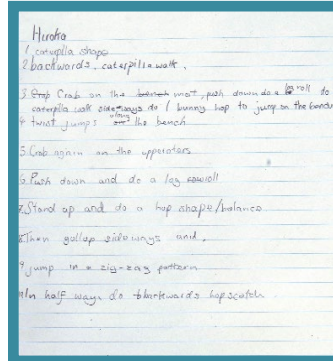 Hiroka
1 caterpilla shape
2 backwards. caterpilla walk.
3 Crab on the mat, push down do a leg roll to
caterpilla walk sideways do 1 bunny hop to jump on the bench
4 twist jumps along the bench
5. Crab again on the apperators
6. Push down and do a leg
7. Stand up and do a hop shape/balance
8. Then gallup sideways and.
9 jump in a zig-zag pattern
In half way do backwards hopscotch